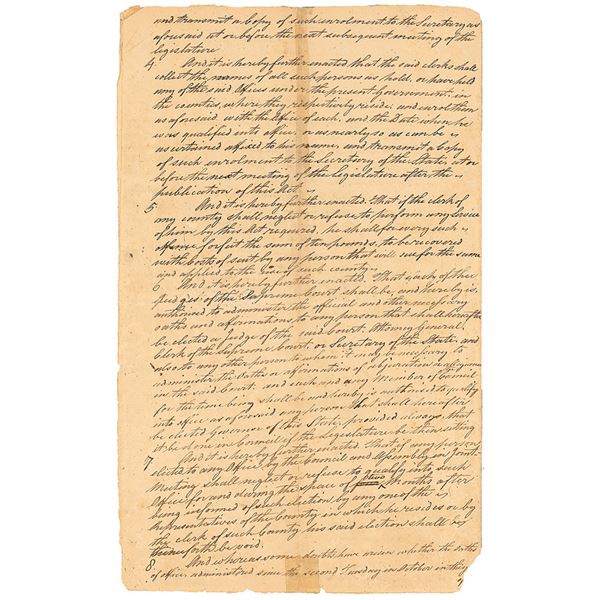 and transmit a Copy of such enrolment to the Secretary as
aforesaid at or before the next subsequent meeting of the
legislature
4. And it is hereby further enacted that the said clerks shall
collect the names of all such persons as hold, or have held
any of the said Offices under the present Government in
the counties, where they respectively reside; and enrol them
as aforesaid with the Office of each; and the Date when he
was qualified into office or as nearly so as can be
ascertained affixed to his name, and transmit a Copy
of such enrolment to the Secretary of the State, at or
before the next meeting of the Legislature after the
publication of this Act.
5 And it is hereby further enacted. that if the clerk of
any county shall neglect or refuse to perform any Service
of him by this Act required, he shall for every such
offence forfeit the sum of ten pounds, to be recovered
with Costs of suit by any person that will sue for the same
and applied to the use of such county
6 And it is hereby further enacted. That each of the
judges of the Supreme Court shall be, and hereby is,
authorised to administer the official and other necessary
oaths and affirmations to any person that shall hereafter
be elected a judge of the said Court, Attorney General,
Clerk of the Supreme Court, or Secretary of the State, and
also to any other person to whom it may be necessary to
administer the Oaths or affirmations of abjuration or allegiance
in the said Court. and each and any Member of Council
for the time being shall be and hereby is authorised to qualify
into office as aforesaid any person that shall hereafter
be elected Governor of this State, provided always, that
it be done in Council if the Legislature be then sitting
7. And it is hereby further enacted. that if any person
elected to any Office by the Council and Assembly in Joint-
Meeting shall neglect or refuse to qualify into such
Office for and during the space of two Months after
being informed of such election by any one of the
Representatives of the County in which he resides or by
the clerk of such County his said election shall be
thenceforth be void.
8. And whereas some doubts have arisen whether the oaths
of office administered since the second Tuesday in October in the